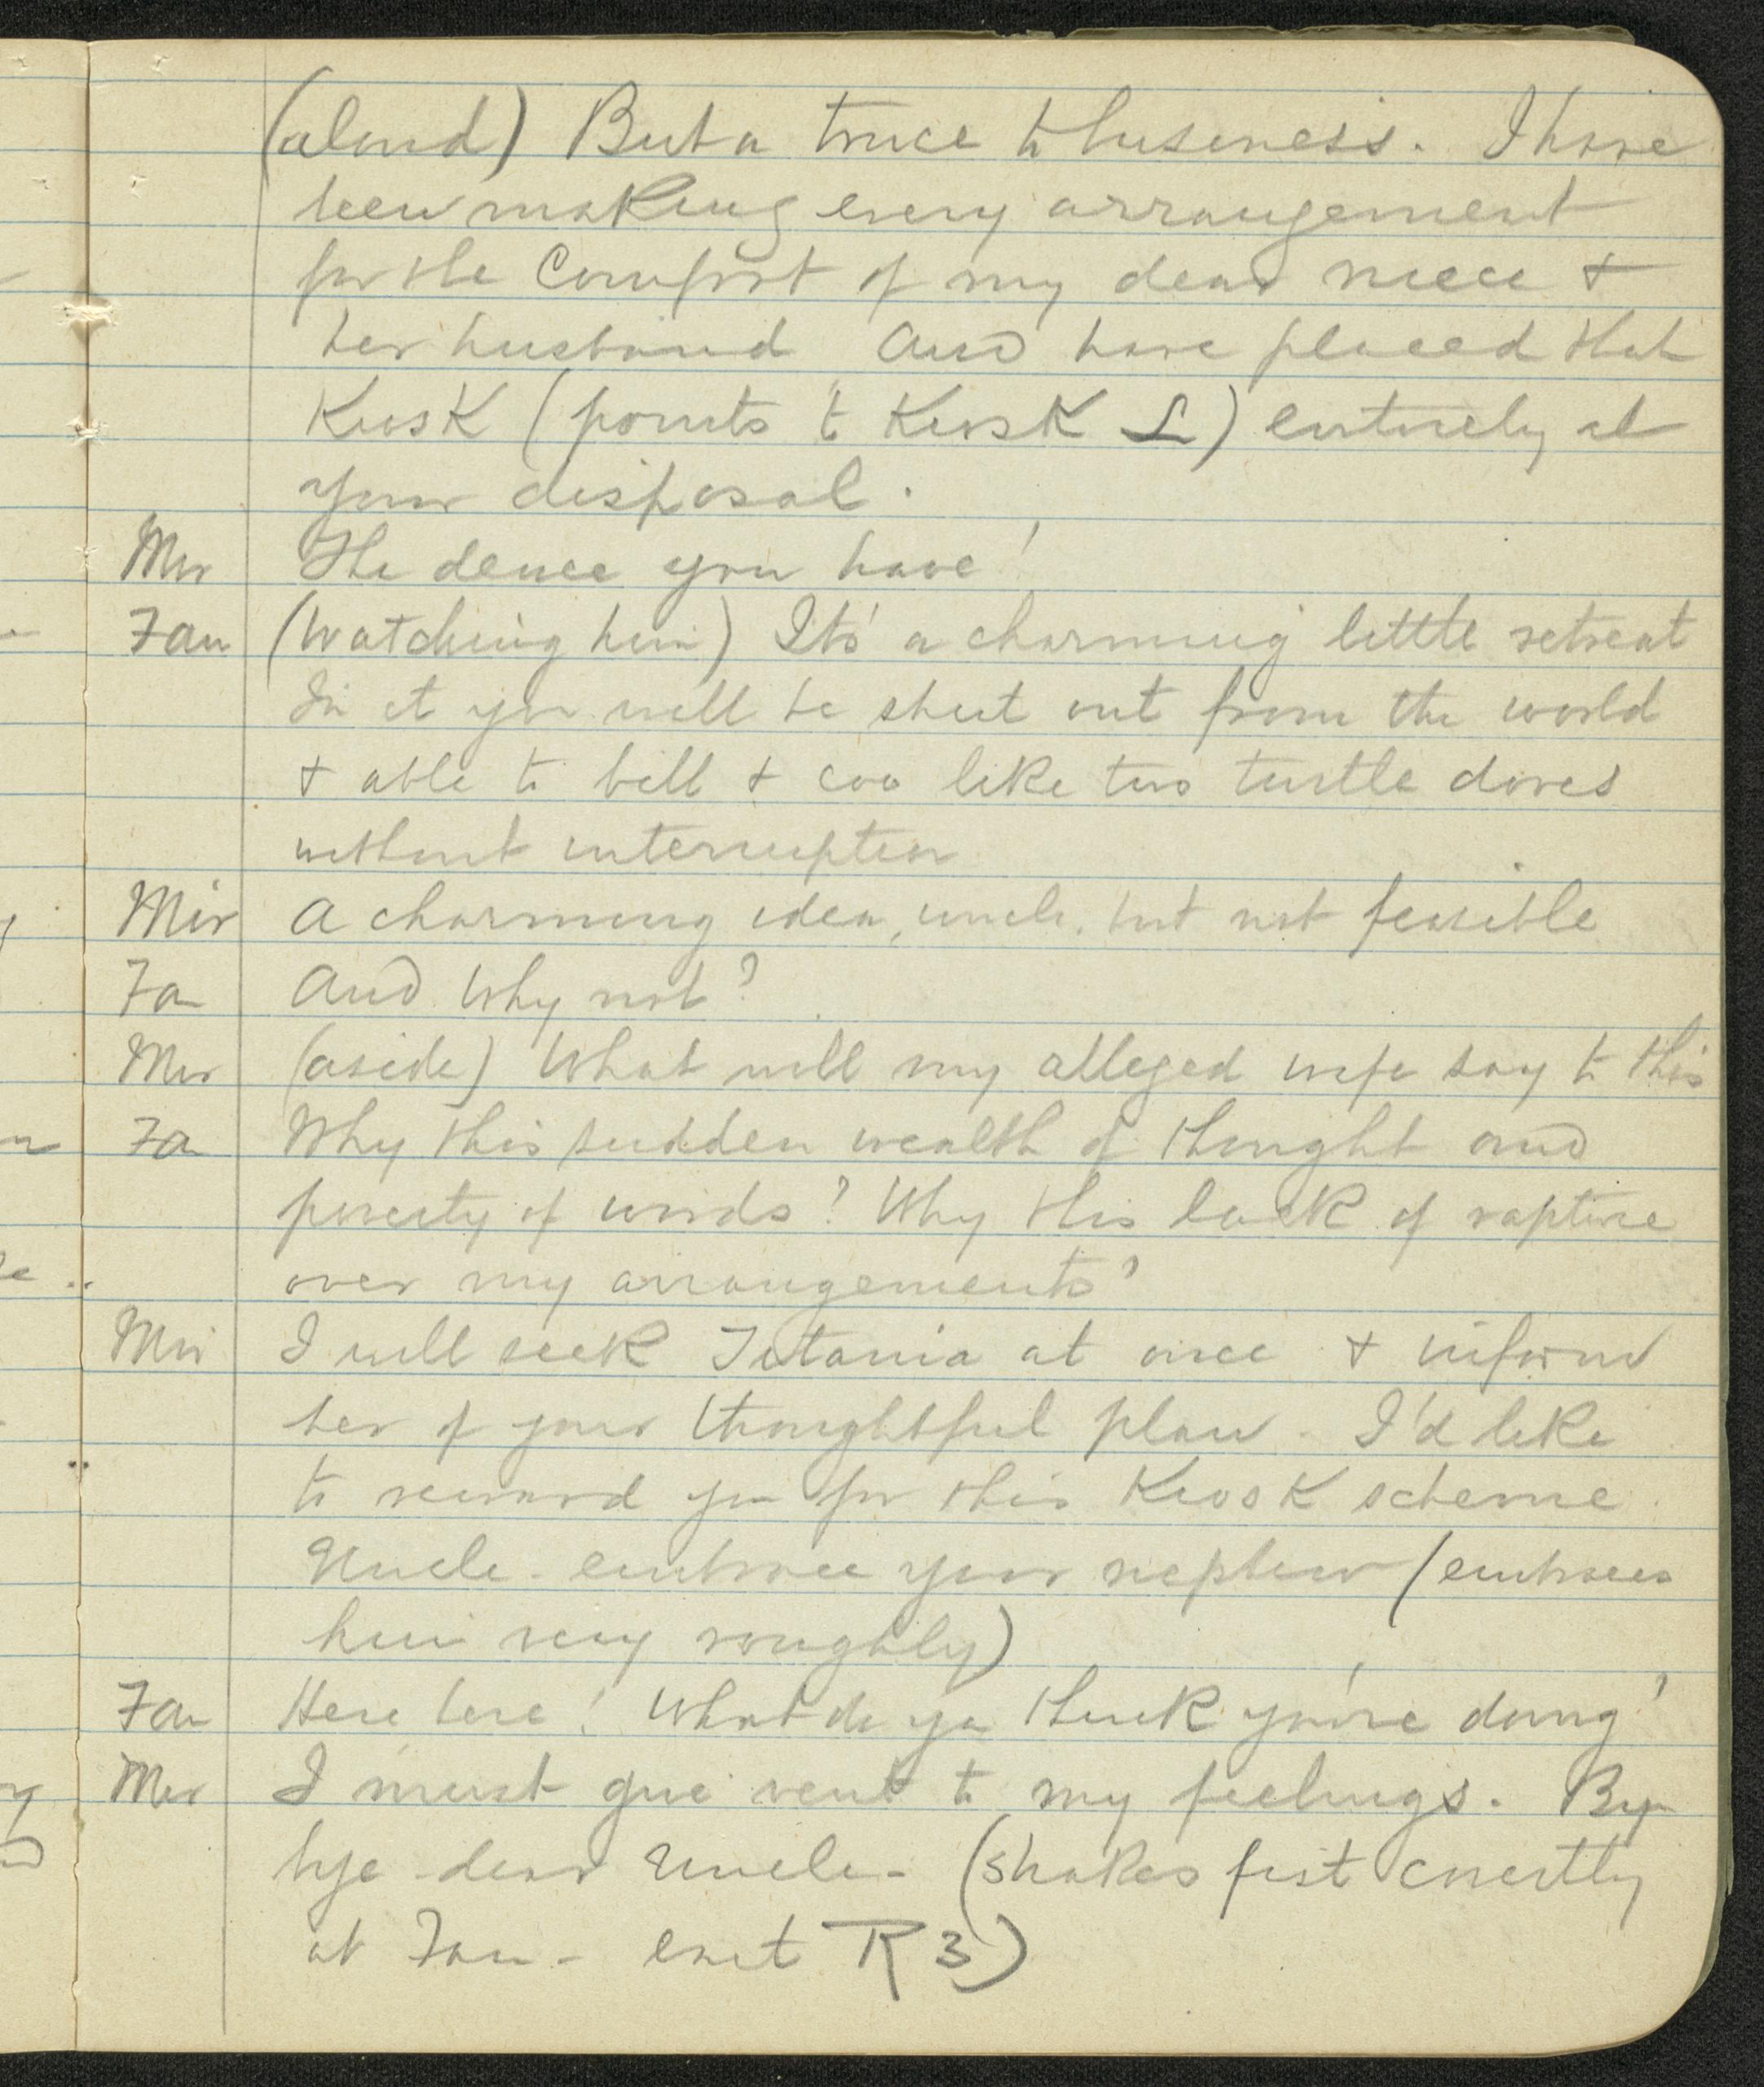 (aloud) But a truce to business. I have
been making every arrangement
for the Comfort of my dear niece &
her husband And have placed that
Kiosk (points to Kiosk L) entirely at
your disposal.
Mir The deuce you have!
Fan (Watching him) It's a charming little retreat
In it you will be shut out from the world
& able to bill & coo like two turtle doves
without interruption
Mir A charming idea, uncle, but not feasible
Fa And Why not?
Mir (aside) What will my alleged wife say to this
Fa Why this sudden wealth of thought and
poverty of words? Why this lack of rapture
over my arrangements?
Mir I will seek Titania at once & inform
her of your thoughtful plan. I'd like
to reward you for this Kiosk scheme.
Uncle - embrace your nephew (embraces
him very roughly)
Fan Here here! What do you think you're doing!
Mir I must give vent to my feelings. By
bye dear Uncle - (shakes fist covertly
at Fan - exit R 3)